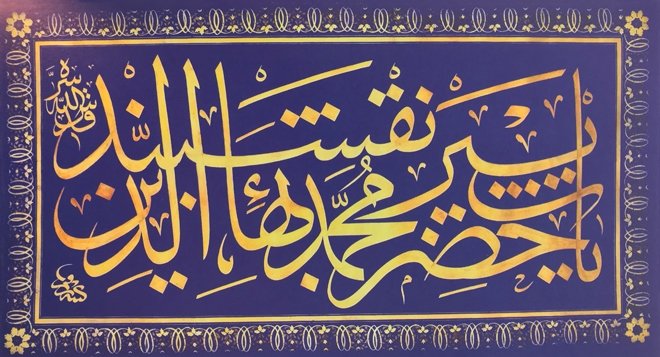 يا حضرت پير
محمد بهاء الدين نقشبند
قدس الله سره